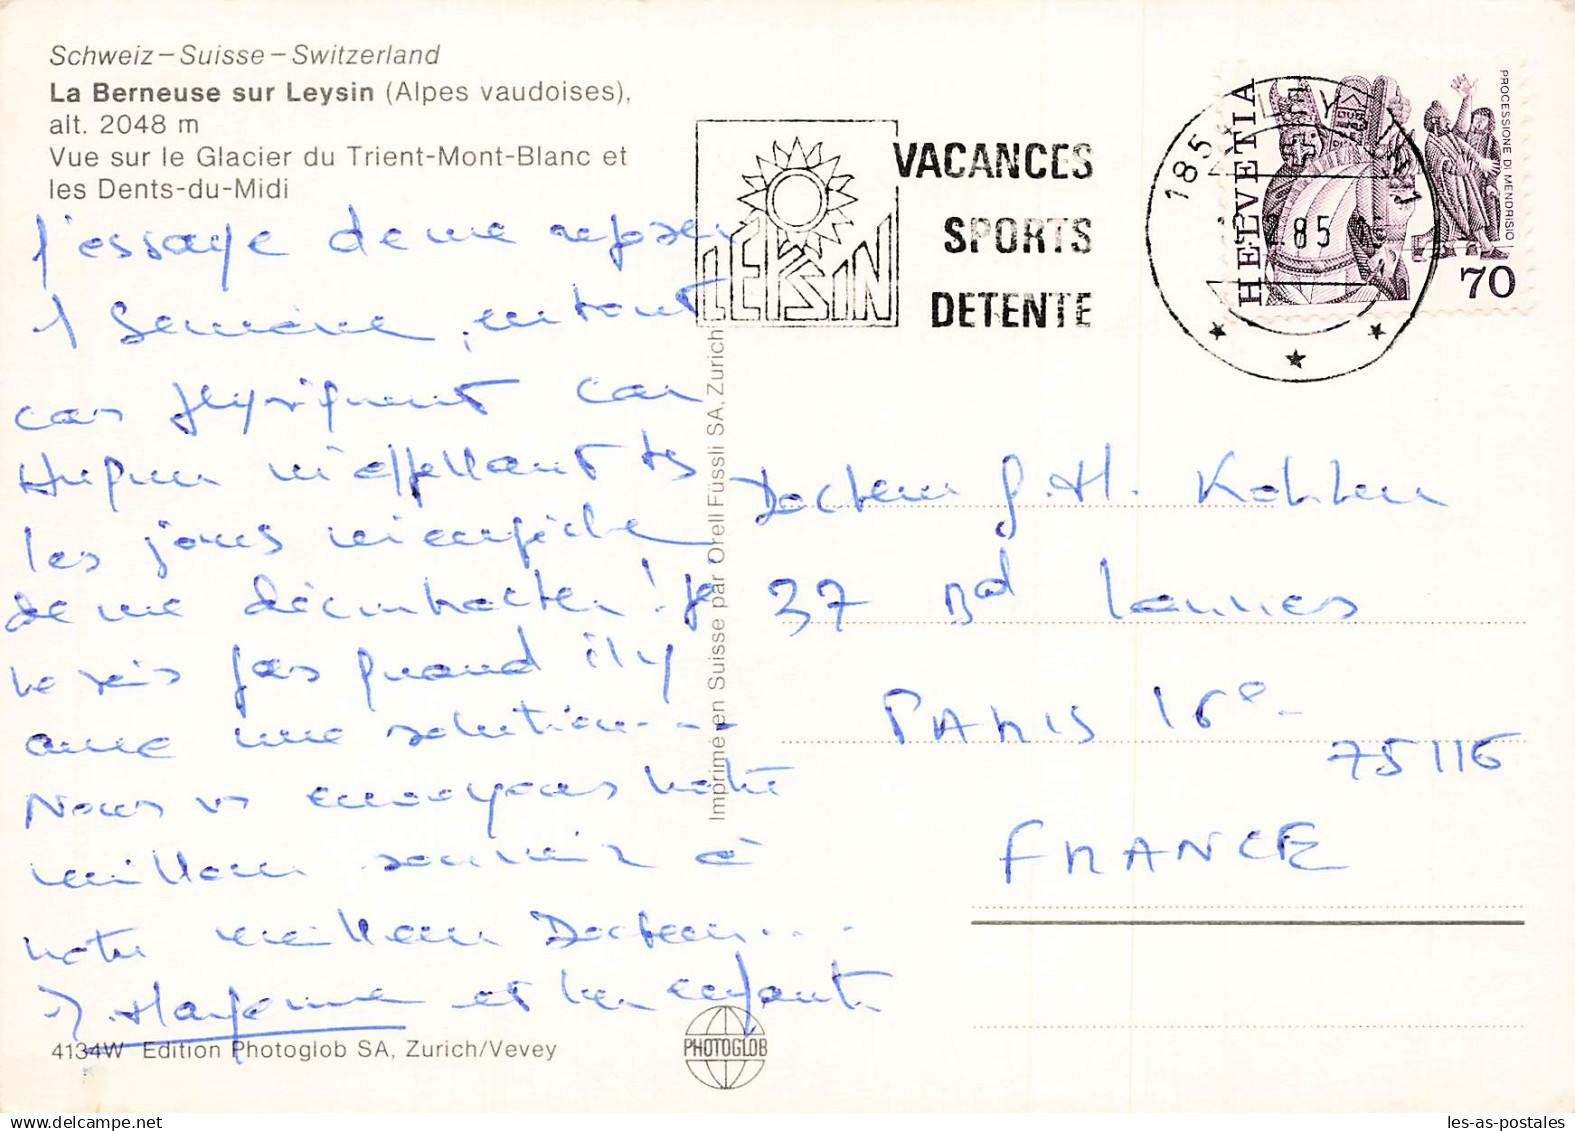 Schweiz – Suisse – Switzerland
La Berneuse sur Leysin (Alpes vaudoises),
alt. 2048 m
Vue sur le Glacier du Trient-Mont-Blanc et
les Dents-du-Midi
J'essaye de me reposer
1 semaine, en tout
cas physiquement car
m'appellant ts
les jours m'empêche
de me décontracter ! Je
ne sais pas quand il y
aura une solution...
Nous vs envoyons notre
meilleur souvenir à
notre meilleur Docteur....
et les enfants
4134W Edition Photoglob SA, Zurich/Vevey
PHOTOGLOB
Imprimé en Suisse par Orell Füssli SA, Zurich
LEYSIN
VACANCES
SPORTS
DETENTE
1854 LEYSIN 1
2.85
HELVETIA
PROCESSIONE DI MENDRISIO
70
Docteur G.H.
37 Bd Lannes
PARIS 16e -
75116
FRANCE
les-as-postales